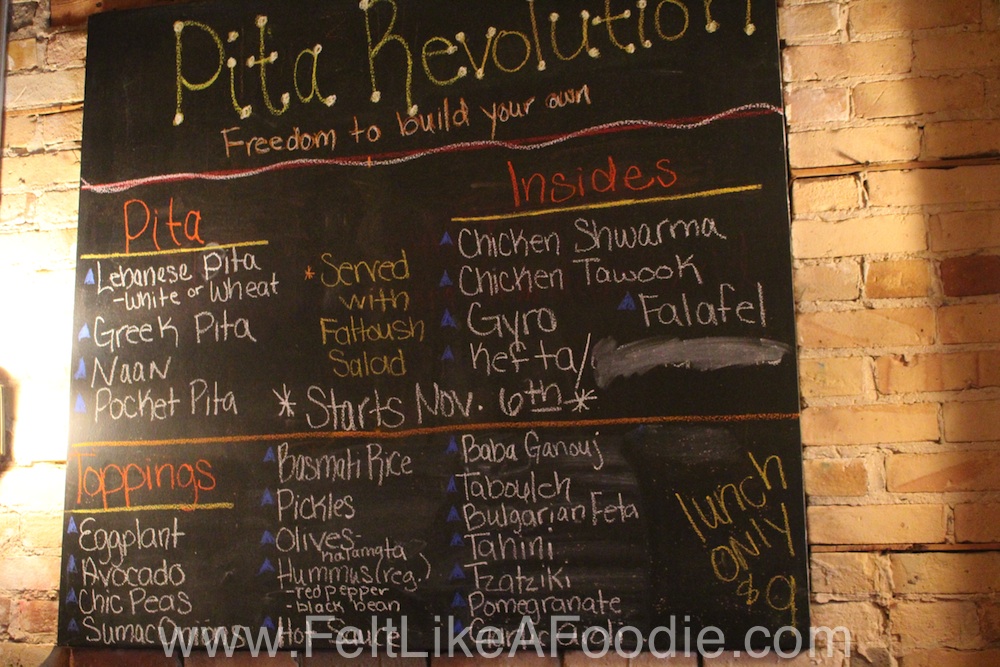 Pita Revolution
Freedom to build your own
Pita
Lebanese Pita
-white or Wheat
Greek Pita
Naan
Pocket Pita
*Served
with
Fattoush
Salad
Insides
Chicken Shwarma
Chicken Tawook
Gyro
Falafel
Kefta/
*Starts Nov. 6th*
Toppings
Eggplant
Avocado
Chic Peas
Sumac Onions
Basmati Rice
Pickles
Olives-
Kalamata
Hummus (reg.)
-red pepper
-black bean
Hot Sauce
Baba Ganouj
Tabouleh
Bulgarian Feta
Tahini
Tzatziki
Pomegranate
Garlic
lunch
only
$9
www.FeltLikeAFoodie.com